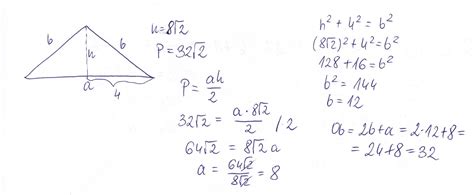 b
b
h
a
4
h=8√2
P=32√2
P = ah/2
32√2 = a·8√2/2 / 2
64√2 = 8√2 a
a = 64√2/8√2 = 8
h² + 4² = b²
(8√2)² + 4² = b²
128 + 16 = b²
b² = 144
b = 12
Ob = 2b + a = 2·12 + 8 =
= 24 + 8 = 32